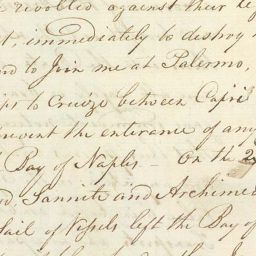 revolted against their
immediately to destroy
to Join me at Palermo,
to Cruize between Capri
prevent the enterance of any
Bay of Naples — On the 2
Sannite and Archime
Sail of Vessels left the Bay of